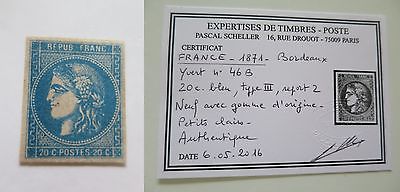 REPUB FRANC
20 C POSTES 20 C
EXPERTISES DE TIMBRES - POSTE
PASCAL SCHELLER 16, RUE DROUOT - 75009 PARIS
CERTIFICAT
FRANCE - 1871 - Bordeaux
Yvert n° 46 B
20c. bleu, type III, report 2
Neuf avec gomme d'origine.
Petits clairs.
Authentique
DATE 6.05.2016